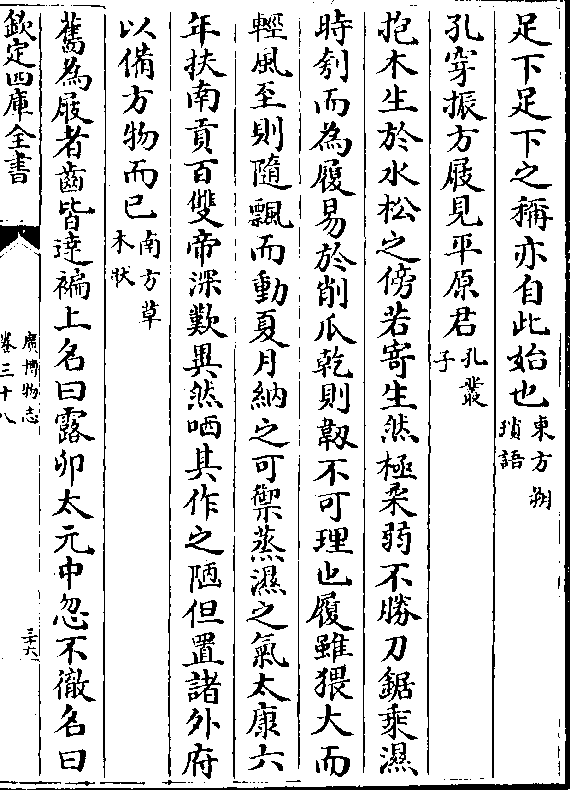 足下足下之稱亦自此始也東方朔瑣語
孔穿振方屐見平原君孔叢子
抱木生於水松之傍若寄生然極柔弱不勝刀鋸乘濕
時刳而為履易於削瓜乾則韌不可理也履雖猥大而
輕風至則隨飄而動夏月納之可禦蒸濕之氣太康六
年扶南貢百雙帝深歎異然哂其作之陋但置諸外府
以備方物而已南方草木狀
舊為屐者齒皆逹褊上名曰露卯太元中忽不徹名曰
欽定四庫全書
廣博物志
卷三十八
三十六